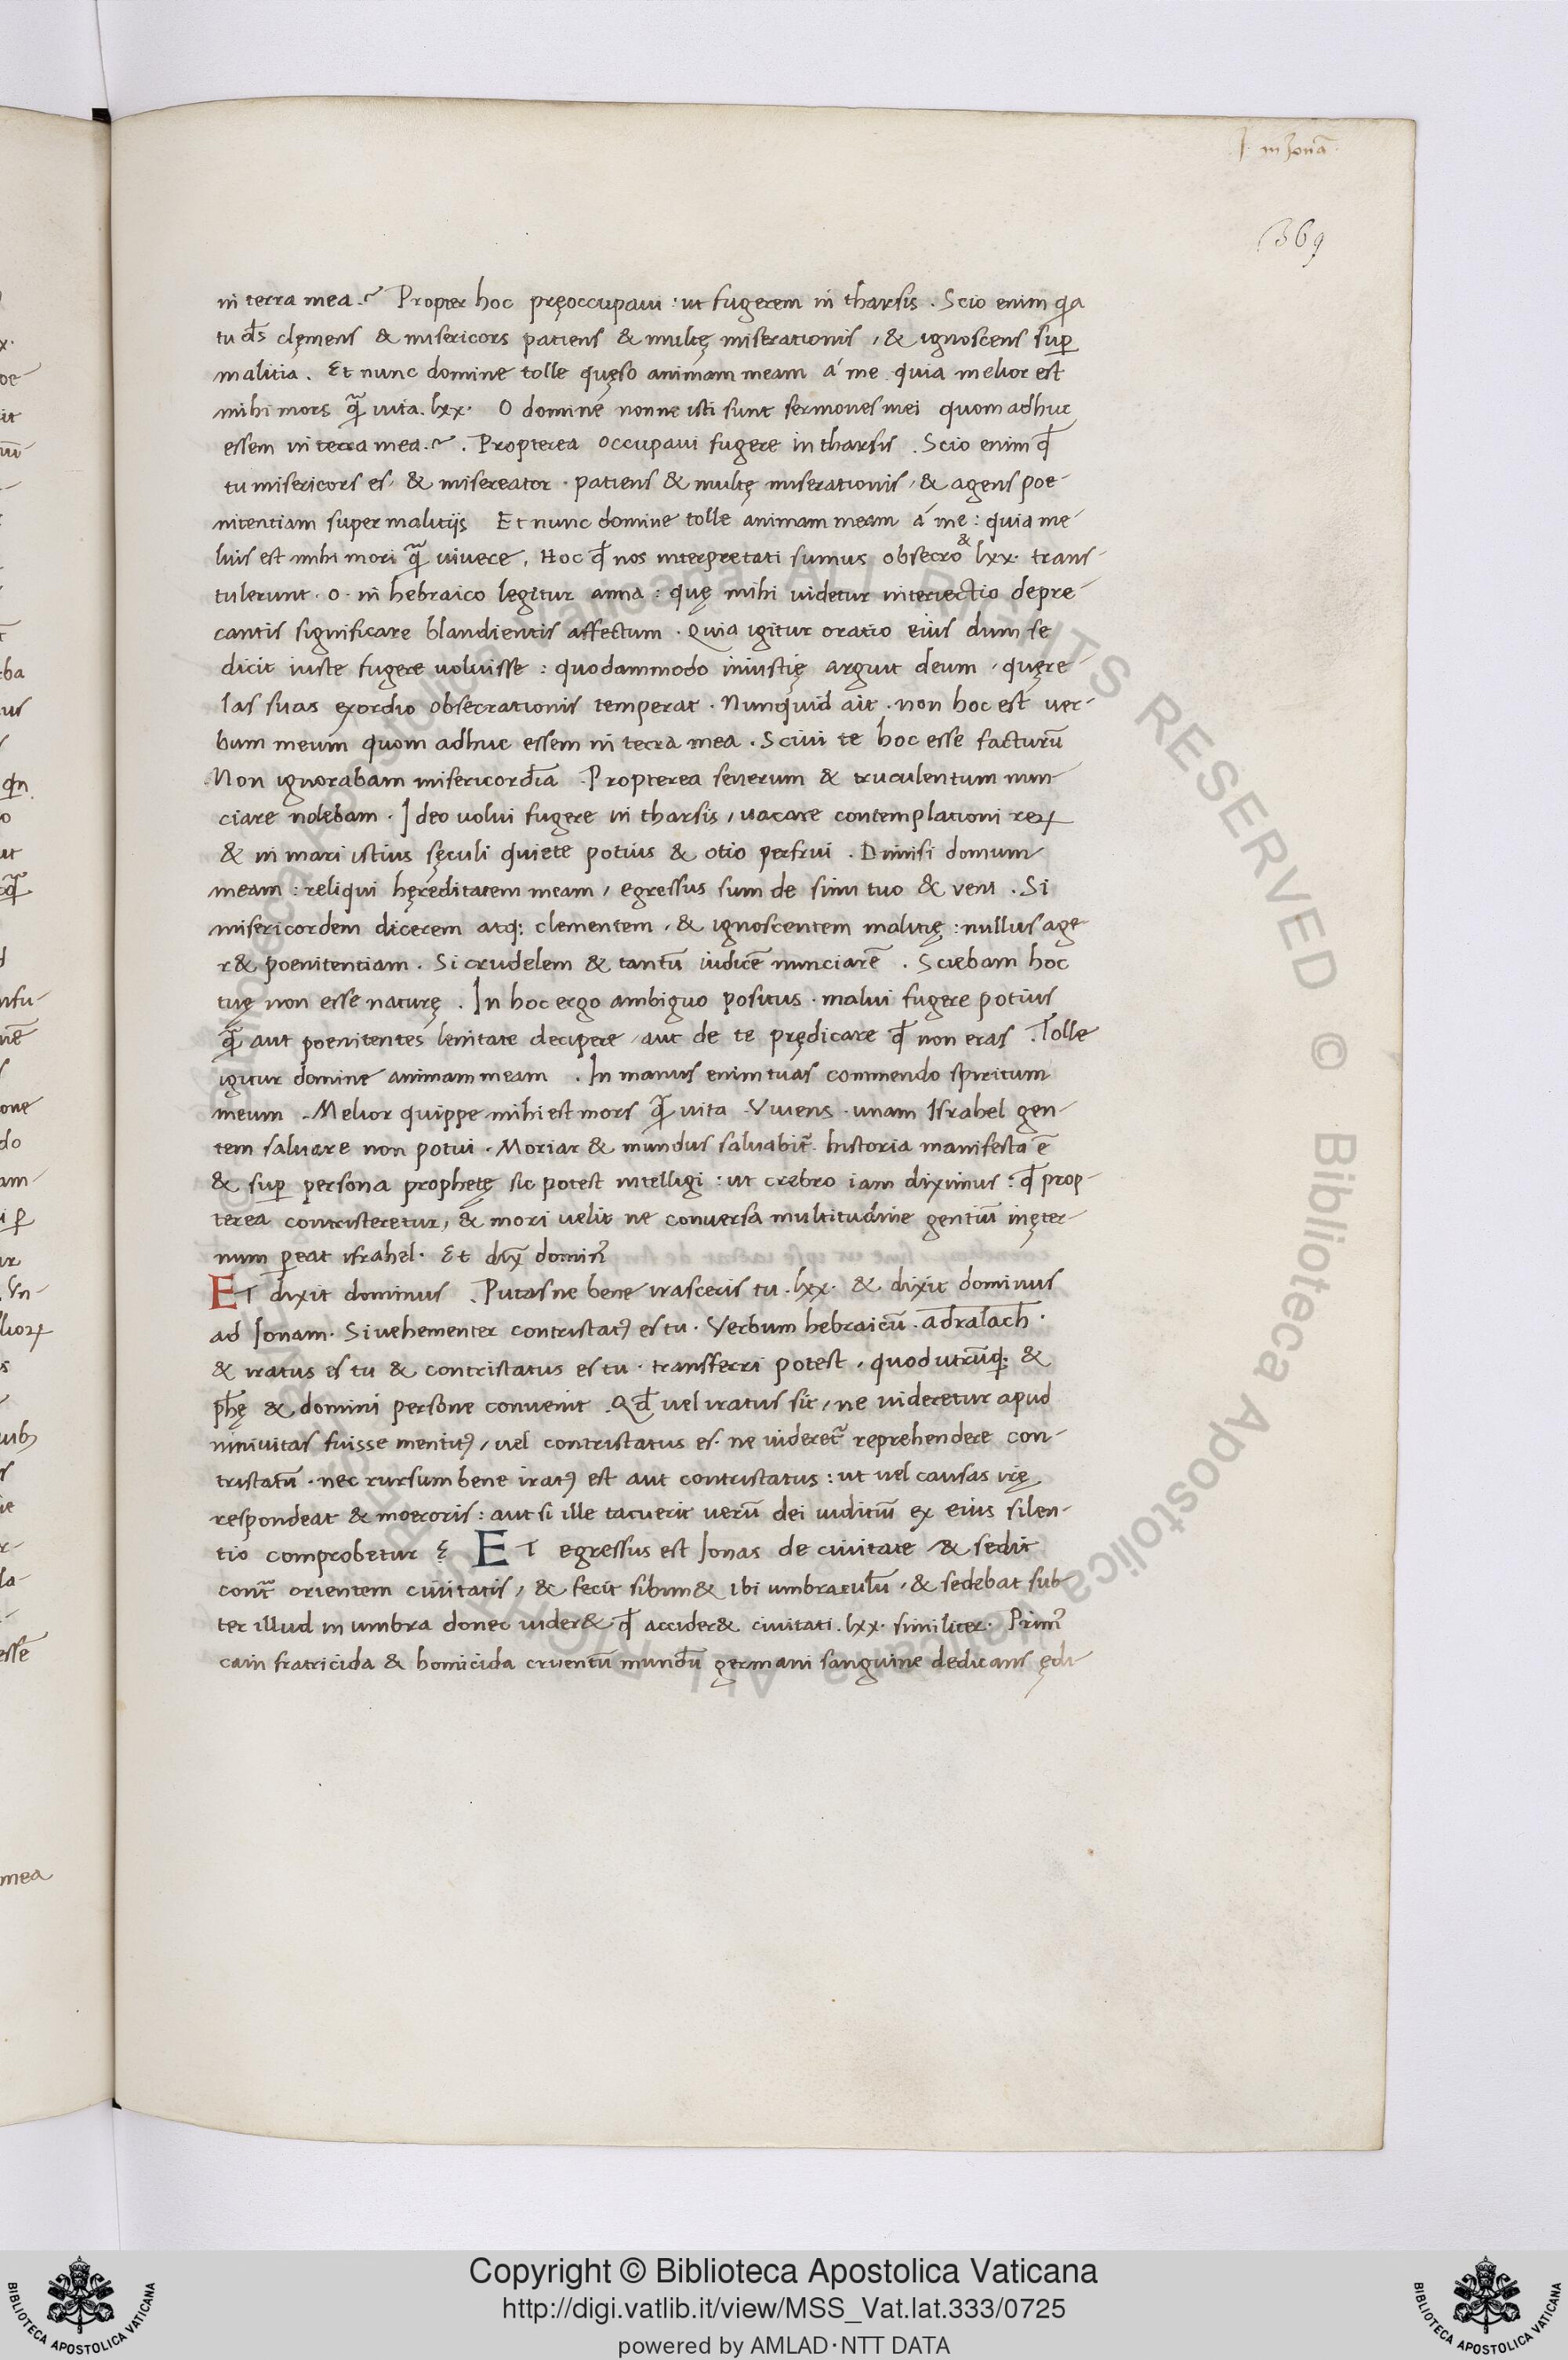 J. in Jonã
369
in terra mea.~ Propter hoc pręoccupaui : ut fugerem in tharsis . Scio enim qa
tu ds̄ clęmens & misericors patiens & multę miserationis , & ignoscens sup̄
malitia . Et nunc domine tolle quęso animam meam á me quia melior est
mihi mors q̄ uita . lxx . O domine nonne isti sunt sermones mei quom adhuc
essem in terra mea.~ . Propterea occupaui fugere in tharsis . Scio enim qđ
tu misericors es , & misereator . patiens & multę miserationis , & agens poe-
nitentiam super malitijs Et nunc domine tolle animam meam á me : quia me-
lius est mihi mori q̄ uiuere . Hoc qđ nos interpretati sumus obsecro & lxx . trans-
tulerunt . o . in hebraico legitur anna : quę mihi videtur interiectio depre-
cantis significare blandientis affectum . Quia igitur oratio eius dum se
dicit iuste fugere uoluisse : quodammodo iniustię arguit deum , quęre-
las suas exordio obsecrationis temperat . Nunquid ait . non hoc est uer-
bum meum quom adhuc essem in terra mea . Sciui te hoc esse facturũ
Non ignorabam misericordĩa . Propterea seuerum & truculentum nun-
ciare nolebam . Ideo uolui fugere in tharsis , uacare contemplationi reꝝ
& in mari istius sęculi quiete potius & otio perfrui . Dimisi domum
meam : reliqui hęreditatem meam , egressus sum de sinu tuo & veni . Si
misericordem dicerem atq; clementem , & ignoscentem malitię : nullus age
r& poenitentiam . Si crudelem & tantũ iudicẽ nunciarẽ . Sciebam hoc
tuę non esse naturę . In hoc ergo ambiguo positus . malui fugere potius
q̄ aut poenitentes lenitate decipere , aut de te prędicare qđ non eras . Tolle
igitur domine animam meam . In manus enim tuas commendo spiritum
meum . Melior quippe mihi est mors q̄ uita . Viuens . unam Israhel gen-
tem saluare non potui . Moriar & mundus saluabit᷑ . historia manifesta ẽ
& sup̄ persona prophetę sic potest intelligi : ut crebro iam diximus : qđ prop-
terea contristeretur , & mori uelit ne conuersa multitudine gentiũ in ęter-
num ꝑeat israhel . Et dix̃ domin᷑
ET dixit dominus . Putasne bene irasceris tu . lxx . & dixit dominus
ad Jonam . Si uehementer contristatꝰ es tu . Verbum hebraicũ . adralach .
& iratus es tu & contristatus es tu . transferri potest , quod utrũq; &
ꝓhę & domini persone convenit . Qđ uel iratus sit , ne videretur apud
niniuitas fuisse mentitꝰ , uel contristatus es . ne uideret᷑ reprehendere con-
tristatũ . nec rursum bene iratꝰ est aut contristatus : ut uel causas irę
respondeat & moeroris : aut si ille tacuerit uerũ dei iuditiũ ex eius silen-
tio comprobetur ę ET egressus est Jonas de ciuitate , & sedit
cont᷑ orientem ciuitatis , & fecit sibim& ibi umbraculũ , & sedebat sub-
ter illud in umbra donec uider& qđ accider& ciuitati . lxx . similiter . Prim᷑
cain fratricida & homicida cruentũ mundũ germani sanguine dedicans ędi-
Copyright © Biblioteca Apostolica Vaticana
http://digi.vatlib.it/view/MSS_Vat.lat.333/0725
powered by AMLAD·NTT DATA
BIBLIOTECA APOSTOLICA VATICANA
BIBLIOTECA APOSTOLICA VATICANA